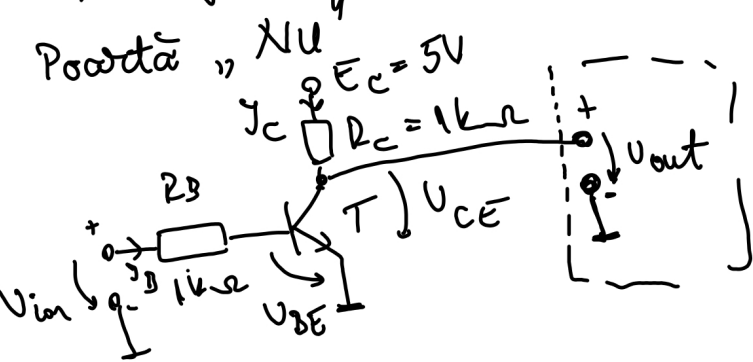 Poartă „NU"
E_C = 5V
I_C
R_C = 1kΩ
+
U_out
-
R_B
T
U_CE
+
I_B
1kΩ
U_in
-
U_BE